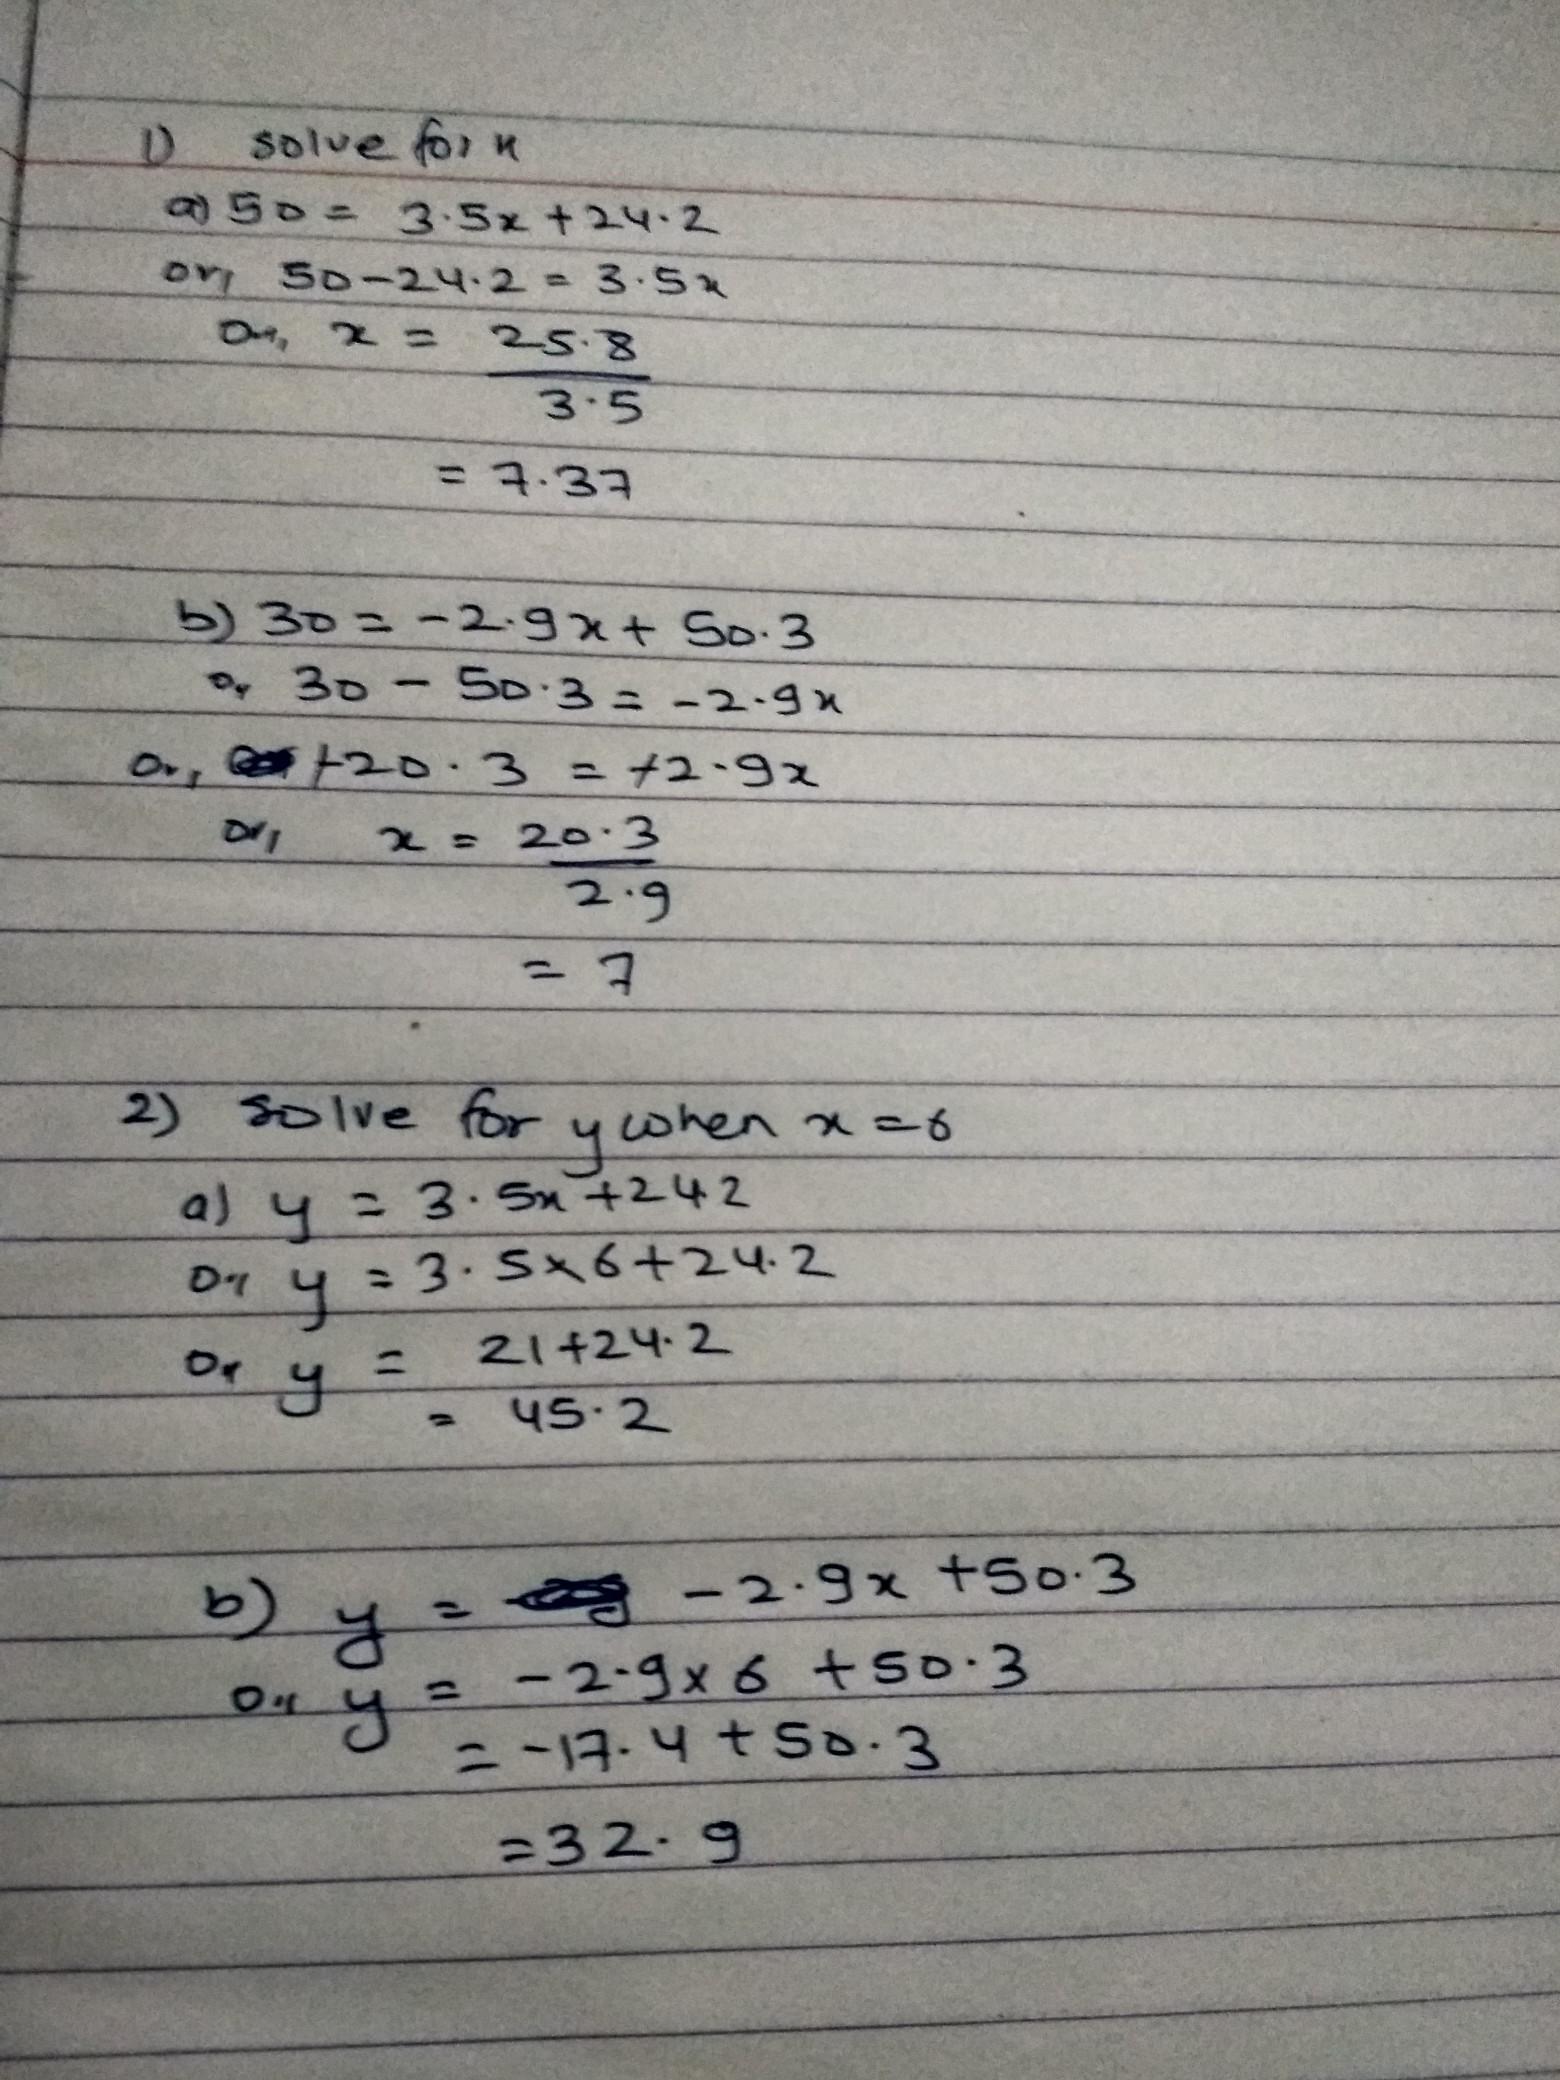 1) solve for x
a) 50 = 3.5x + 24.2
or, 50-24.2 = 3.5x
or, x = 25.8
3.5
= 7.37
b) 30 = -2.9x + 50.3
or 30 - 50.3 = -2.9x
or, +20.3 = +2.9x
or, x = 20.3
2.9
= 7
2) solve for y when x = 6
a) y = 3.5x + 242
or y = 3.5x6+24.2
or y = 21+24.2
= 45.2
b) y = -2.9x +50.3
or y = -2.9x6 +50.3
= -17.4 + 50.3
= 32.9